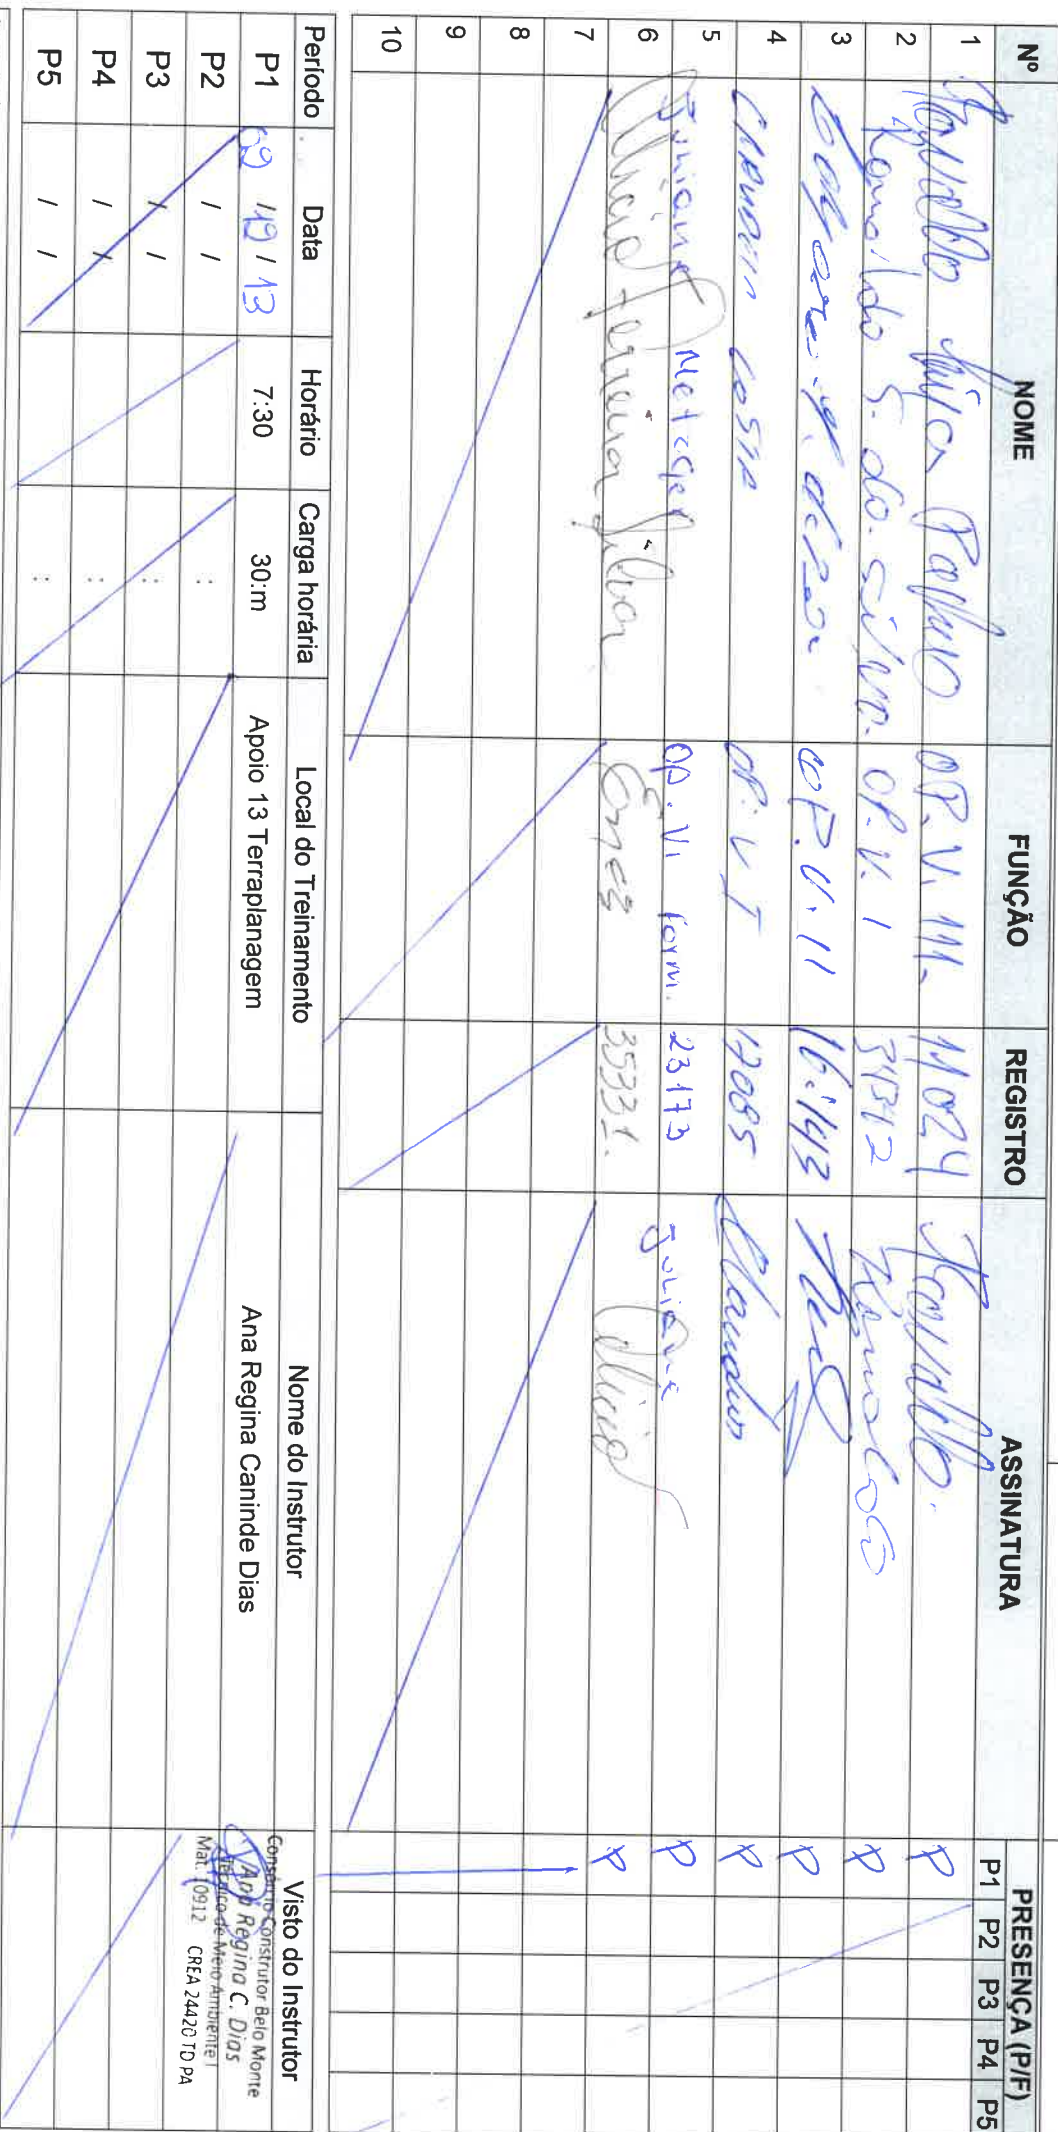 Nº NOME FUNÇÃO REGISTRO ASSINATURA PRESENÇA (P/F)
P1 P2 P3 P4 P5
1 OP. V. 111. 11024 P
2 Romaildo S. da. silva. OP. V. 1 34342 P
3 OP. V. 11 16.143 P
4 Claudio costa OP. V I 17085 Claudio P
5 Juliane Metzger OP. VI form. 23173 Juliane P
6 Ferreira Silva 35331. P
7
8
9
10
Período Data Horário Carga horária Local do Treinamento Nome do Instrutor Visto do Instrutor
P1 09 / 12 / 13 7:30 30:m Apoio 13 Terraplanagem Ana Regina Caninde Dias
Consórcio Construtor Belo Monte
Ana Regina C. Dias
Técnico de Meio Ambiente I
Mat. 10912 CREA 24420 TD PA
P2 / / :
P3 / / :
P4 / / :
P5 / / :